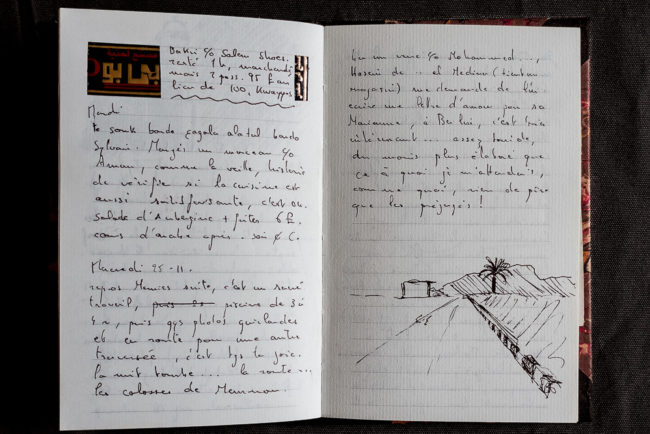 Bakri c/o Salem Shoes.
resté 1h, marchandé,
mais 2 poss. 95 £ au
lieu de 100,
Mardi
Sylvain. Mangés un morceau c/o
Aman, comme la veille, histoire
de vérifier si la cuisine est
aussi satisfaisante, c'est ok.
Salade d'Aubergine + frites 6 £.
cours d'arabe après. soir
Mercredi 25-11.
repos Memies suite, c'est un sacré
travail, piscine de 3 à
4 h, puis qqs photos guirlandes
et en route pour une autre
traversée, c'est tjs la joie.
la nuit tombe... la route...
les colosses de Memnon.
c/o Mohammed...,
Hosein de .. el Medina
magasin) me demande de lui
écrire une lettre d'amour pour sa
Marianne, à Berlin, c'est
intéressant... assez torride,
du moins plus élaboré que
ce à quoi je m'attendais,
comme quoi, rien de pire
que les préjugés !